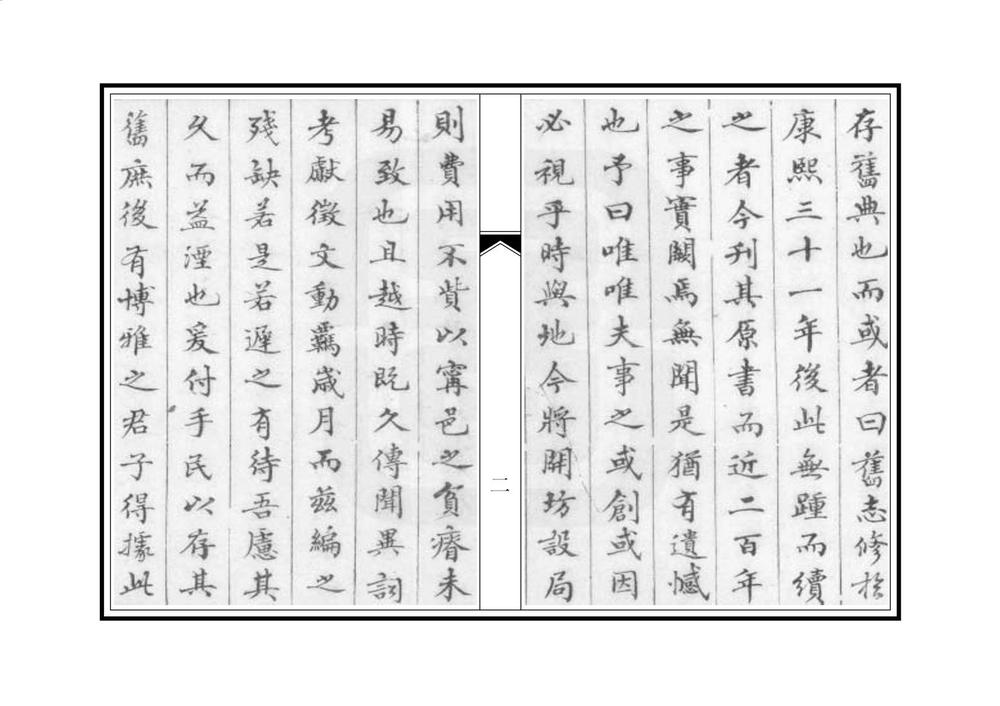 存舊典也而或者曰舊志修於
康熙三十一年後此無踵而續
之者今刋其原書而近二百年
之事實闕焉無聞是猶有遺憾
也予曰唯唯夫事之或創或因
必視乎時與地今將開坊設局
二
則費用不貲以甯邑之貧瘠未
易致也且越時既久傳聞異詞
考獻徵文動羈歲月而茲編之
殘缺若是若遲之有待吾慮其
久而益湮也爰付手民以存其
舊庶後有博雅之君子得據此